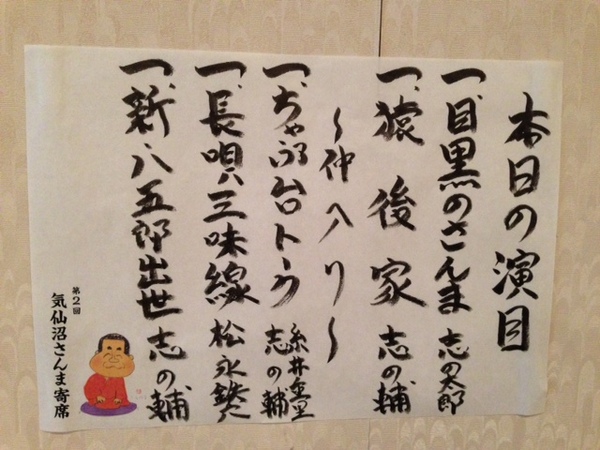 本日の演目
一、目黒のさんま 志の太郎
一、猿後家 志の輔
〜仲入り〜
一、ちゃぶ台トーク 糸井重里 志の輔
一、長唄三味線 松永鉄九郎
一、新・八五郎出世 志の輔
第2回
気仙沼さんま寄席